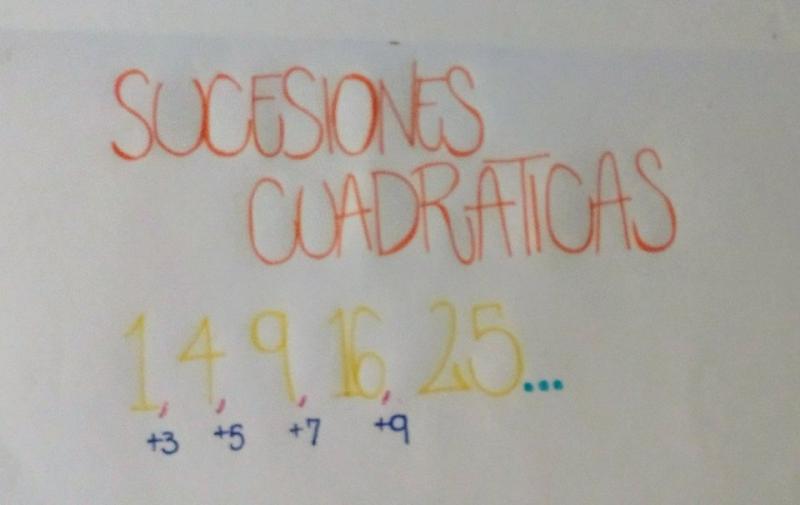 SUCESIONES
CUADRATICAS
1, 4, 9, 16, 25...
+3 +5 +7 +9